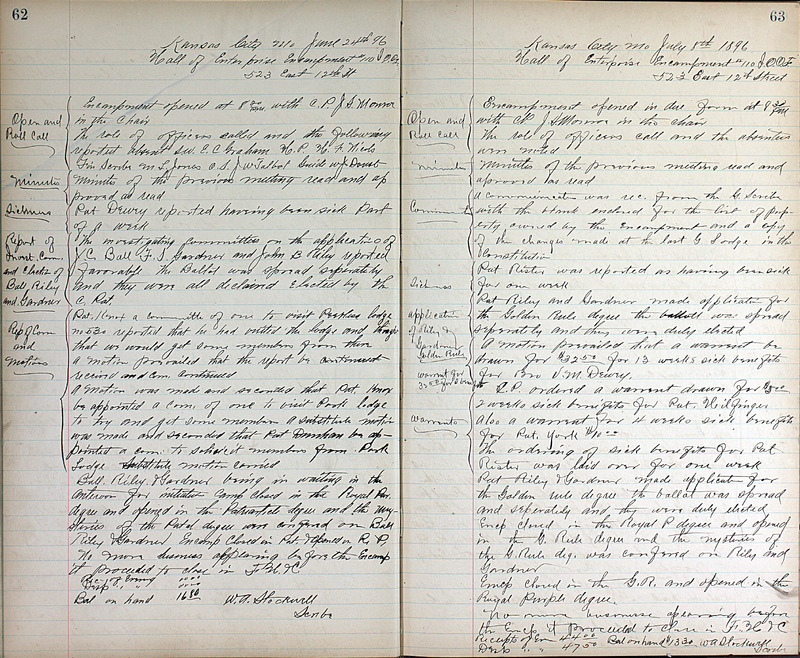 62
Kansas City Mo June 24th 96
Hall of Enterprise Encampment #10 I.O.O.F.
523 East 12th St
Open and
Roll Call
Encampment opened at 8 with C.P. J.S. Monroe
in the Chair
The role of officers called and the following
reported absent S.W. E.C. Graham H.P. N.F. Nicols
Fin Scribe M.L. Jones O.S. J.W. Talbot Guide W.J. Doust
Minutes
Minutes of the previous meeting read and ap
proved as read
Sickness
Pat Dewry reported having been sick Part
of a week
Report of
Invest. Com.
and Election of
Ball, Riley
and Gardner
The investigating committees on the application of
Ball F.S. Gardner and John B Riley reported
favorably the Ballot was spread seperately
and they were all declared elected by the
C. Pat
Rep of Com
and
Motions
Pat. Knox a committee of one to visit Peerless lodge
no 530 reported that he had visited the lodge and thought
that we would get some members from there
A motion prevailed that the report be
received and com continued
A motion was made and seconded that Pat. Knox
be appointed a com. of one to visit Park lodge
to try and get some members A substitute motion
was made and seconded that Pat Dunham be ap-
pointed a com. to solicit members from Park
Lodge substitute motion carried
Ball Riley & Gardner being in waiting in the
Anteroom for initiation Camp closed in the Royal Pur.
degree and opened in the Patriarchal degree and the mys-
teries of the Patrl degree were confered on Ball
Riley & Gardner Encamp Closed in Pat & Opened in R. P.
No more business appearing before the Encamp
it proceded to close in F. H. & C
Rec. of Evening
Disp " "
Bal on hand 16 80
W.A. Stockwell
Scribe
63
Kansas City Mo July 8th 1896
Hall of Enterprise Encampment #10 I.O.O.F.
523 East 12th Street
Open and
Roll Call
Encampment opened in due form at 8
with C.P. J S Monroe in the chair
The role of officers call and the absentees
was noted
Minutes
Minutes of the previous meeting read and
approved as read
Communi
A communication was rec. from the G. Scribe
with the blank enclosed for the list of prop-
erty owned by the Encampment and a copy
of the changes made at the last G Lodge in the
Constitution
Sickness
Pat Rister was reported as having been sick
for one week
application
of Riley &
Gardner
Golden Rule
Pat Riley and Gardner made application for
the Golden Rule degree the ballot was spread
seperately and they were duly elected
warrant for
A motion prevailed that a warrant be
drawn for $32 50 for 13 weeks sick benefits
for Bro V.M. Dewry
C.P. ordered a warrant drawn for $5
2 weeks sick benefits for Pat. Hilfinger
warrants
Also a warrant for 4 weeks sick benefits
for Pat. York $10 00
The ordering of sick benefits for Pat
Rister was laid over for one week
Pat Riley & Gardner made application for
the Golden rule degree the ballot was spread
and seperately and they were duly elected
Encp closed in the Royal P degree and opened
in the G. Rule degree and the mysteries of
the G. Rule deg. was confered on Riley and
Gardner
Encp closed in the G.R. and opened in the
Royal Purple degree.
No more business appearing before
the Encp it proceeded to Close in F. H. & C
Receipts of Eve 44 00 Bal on hand 13 30 W A Stockwell
Disb " " 47 50 Scribe